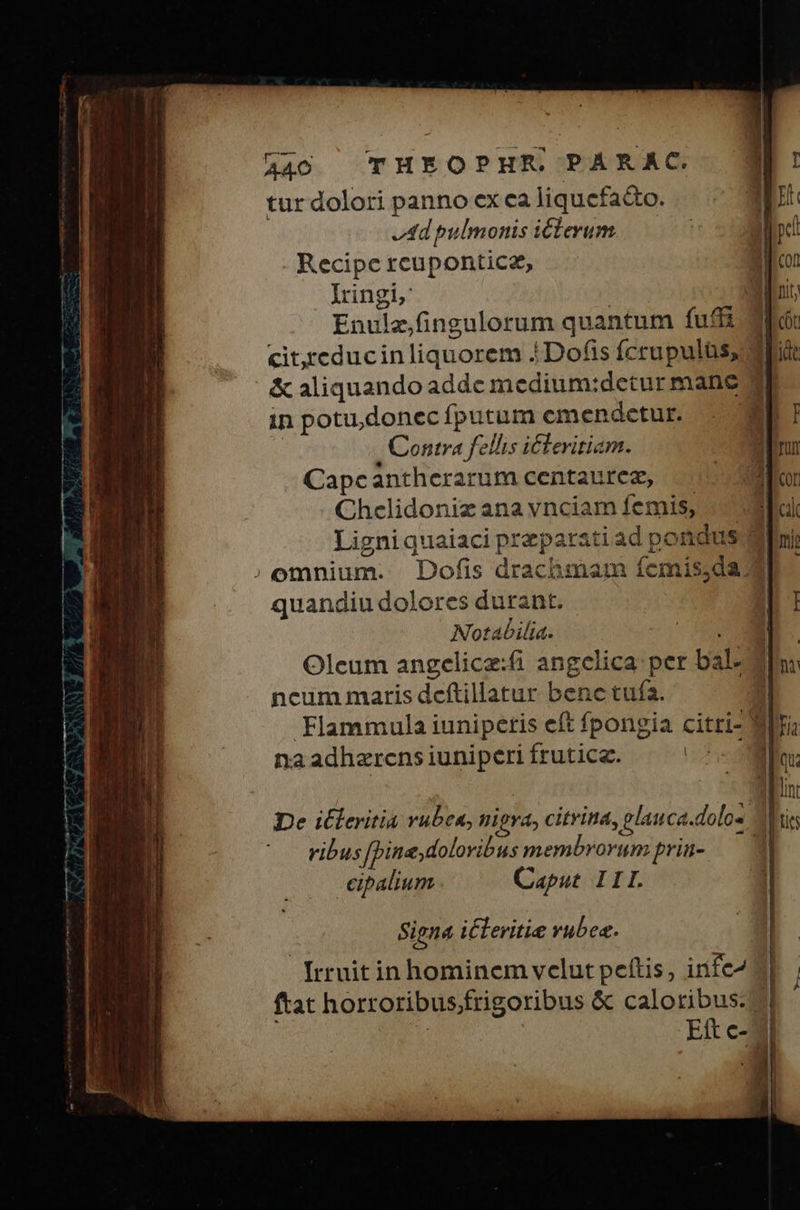 440 THEOPHR. PARAC.
tur dolori panno ex ea liquefacto.
Ad pulmonis icterum
Recipe reuponticæ,
Iringi,
Enulæ, singulorum quantum suffi
cit, reduc in liquorem: Dosis scrupulus,
& aliquando adde medium: detur mane
in potu, donec sputum emendetur.
Contra fellis icteritiam.
Cape antherarum centaureæ,
Chelidoniæ ana vnciam semis,
Ligni quaiaci præparati ad pondus
omnium. Dosis drachmam semis, da
quandiu dolores durant.
Notabilia.
Oleum angelicæ: si angelica per bal-
neum maris destillatur bene tusa.
Flammula iuniperis est spongia citri-
na adhærens iuniperi fruticæ.
De icteritia rubea, nigra, citrina, glauca. dolo-
ribus spinæ, doloribus membrorum prin-
cipalium Caput III.
Signa icteritiæ rubeæ.
Irruit in hominem velut pestis, infe-
stat horroribus, frigoribus & caloribus:
Est e-